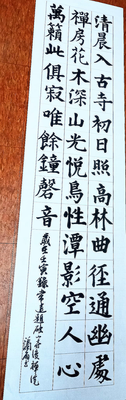 清晨入古寺初日照高林曲徑通幽處
禪房花木深山光悅鳥性潭影空人心
萬籟此俱寂唯餘鐘磬音
歲在壬寅錄常建題破山寺後禪院